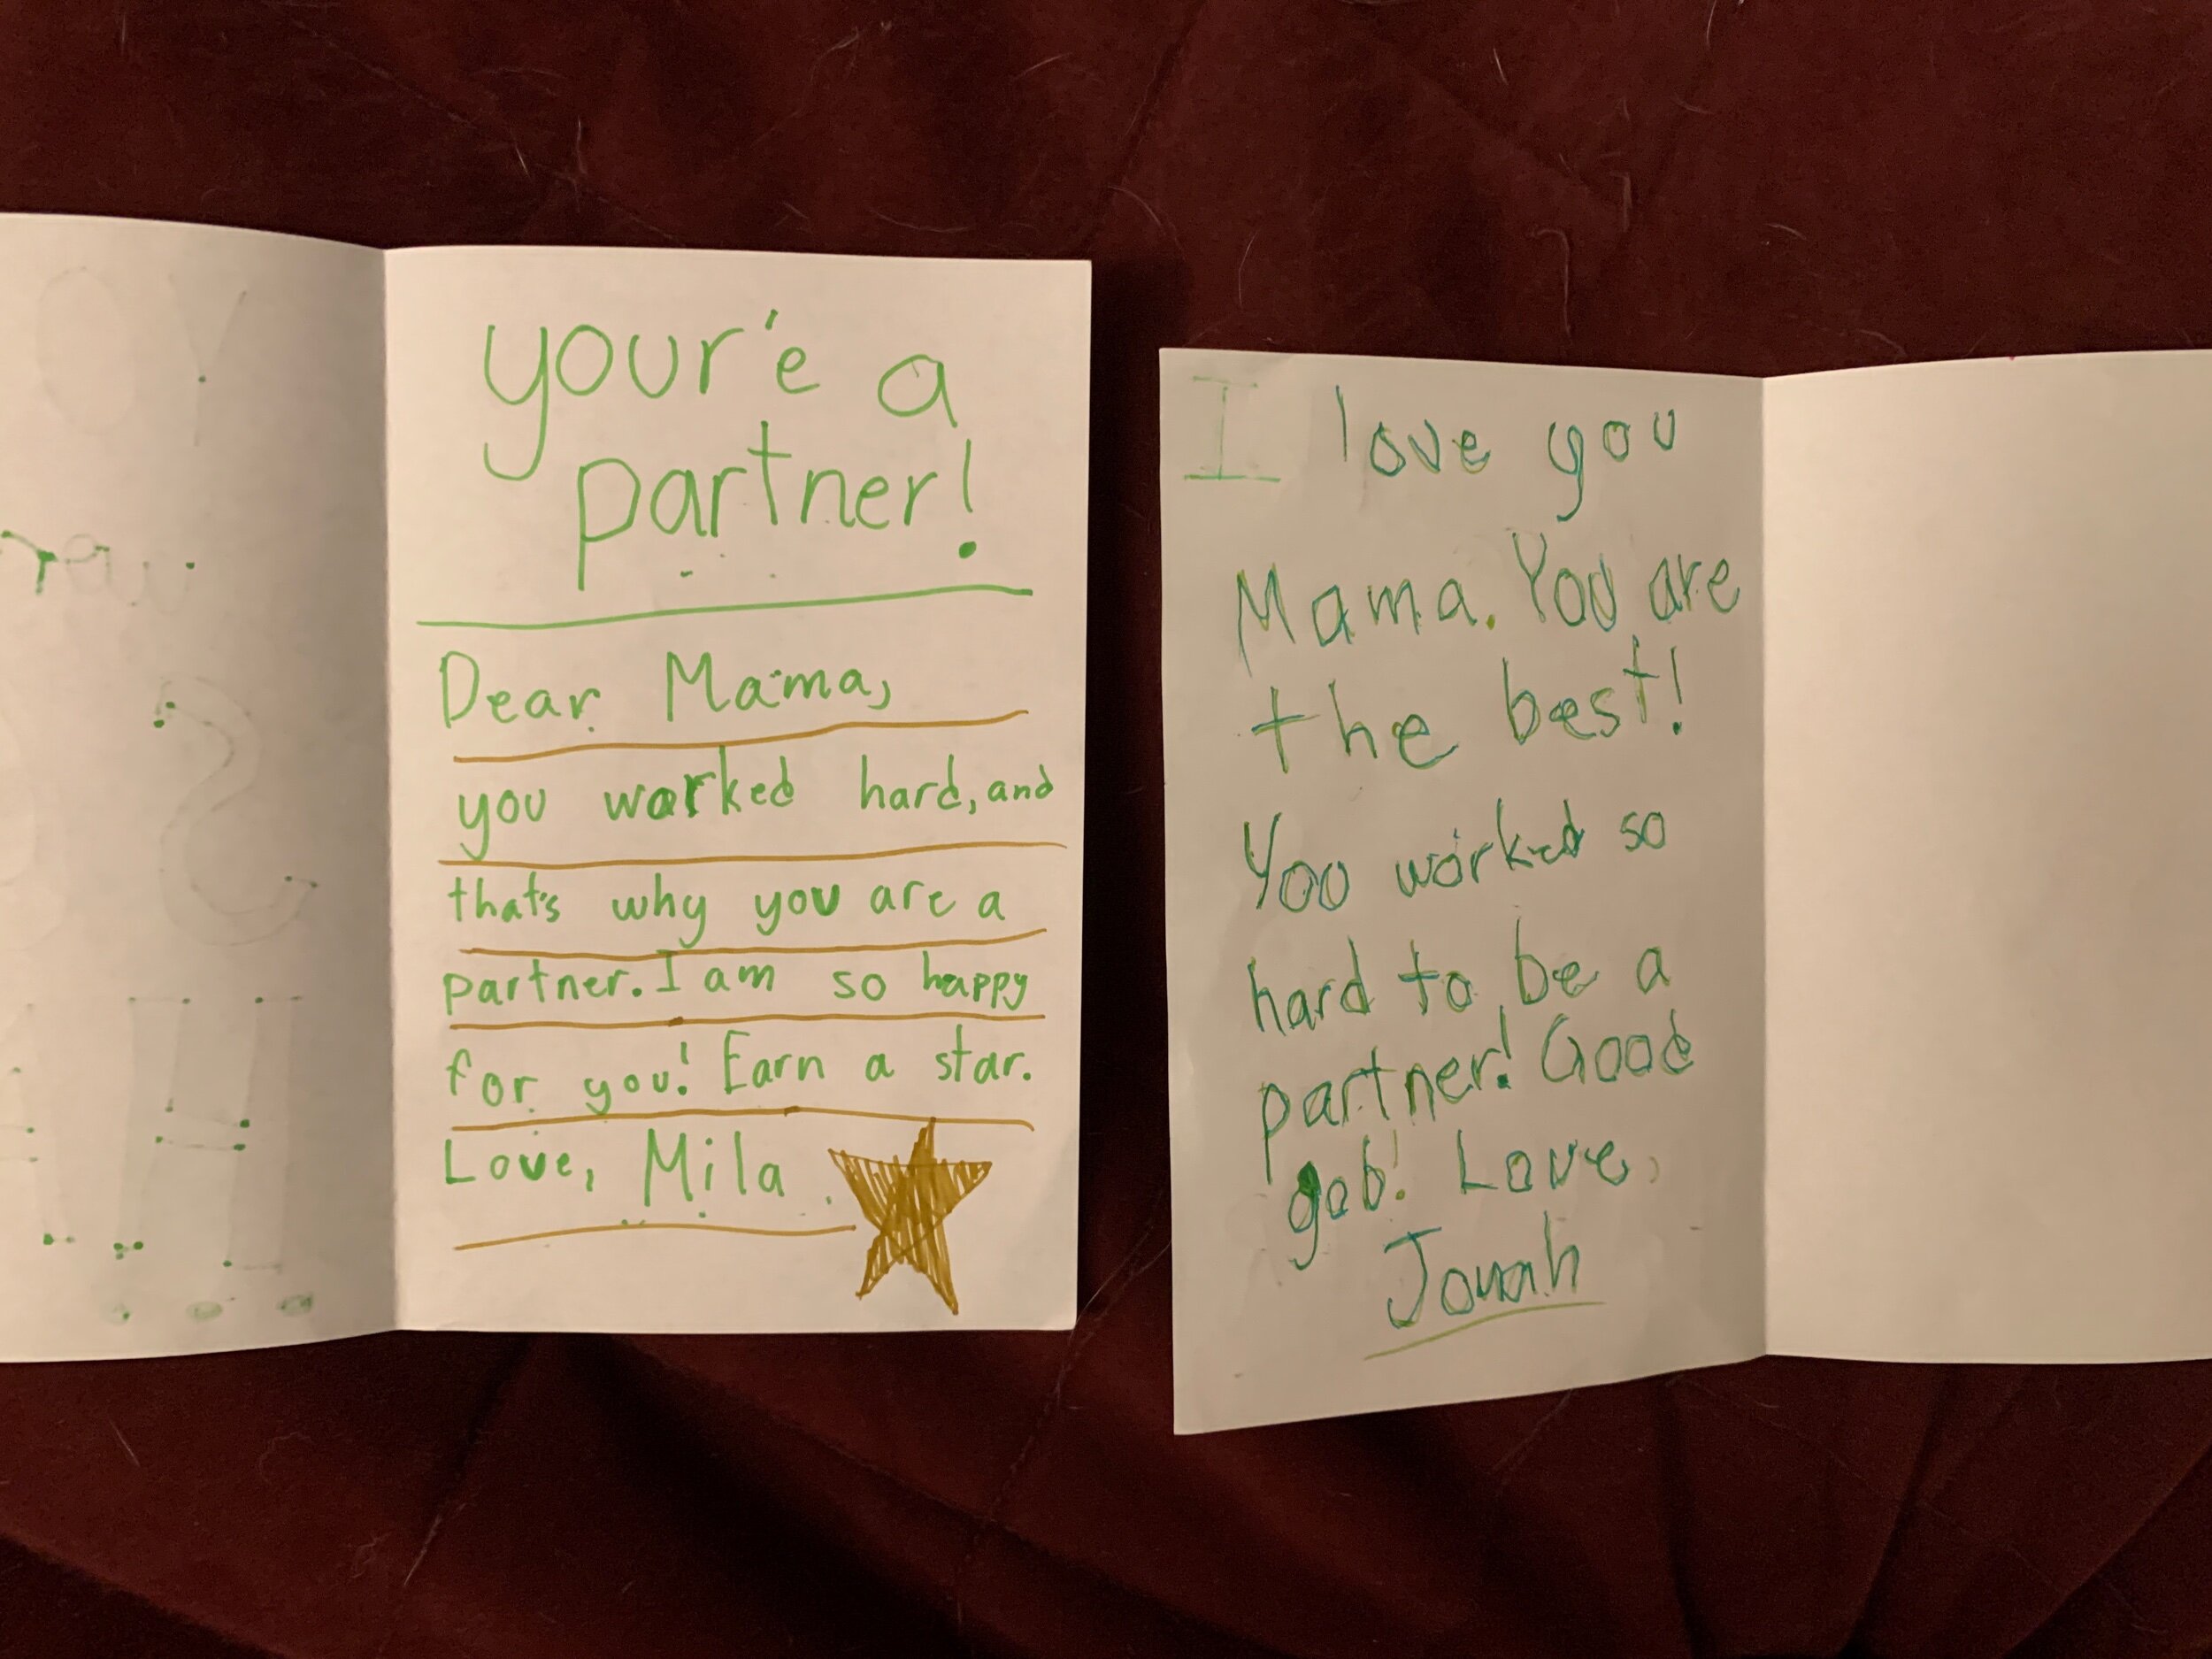 your'e a
partner!
Dear Mama,
you worked hard, and
that's why you are a
partner. I am so happy
for you! Earn a star.
Love, Mila
I love you
Mama. You are
the best!
You worked so
hard to be a
partner! Good
gob! Love,
Jonah